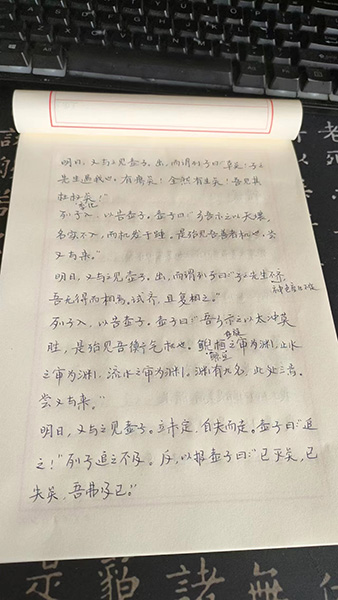 明日，又与之见壶子。出，而谓列子曰："幸矣！子之
先生遇我也。有瘳矣！全然有生矣！吾见其
杜权矣！"
列子入，以告壶子。壶子曰："乡吾示之以天壤，
名实不入，而机发于踵。是殆见吾善者机也。尝
又与来。"
明日，又与之见壶子。出，而谓列子曰："子之先生不齐，
吾无得而相焉。试齐，且复相之。"
列子入，以告壶子。壶子曰："吾乡示之以太冲莫
胜，是殆见吾衡气机也。鲵桓之审为渊，止水
之审为渊，流水之审为渊。渊有九名，此处三焉。
尝又与来。"
明日，又与之见壶子。立未定，自失而走。壶子曰："追
之！"列子追之不及。反，以报壶子曰："已灭矣，已
失矣，吾弗及已。"
是 諸 無